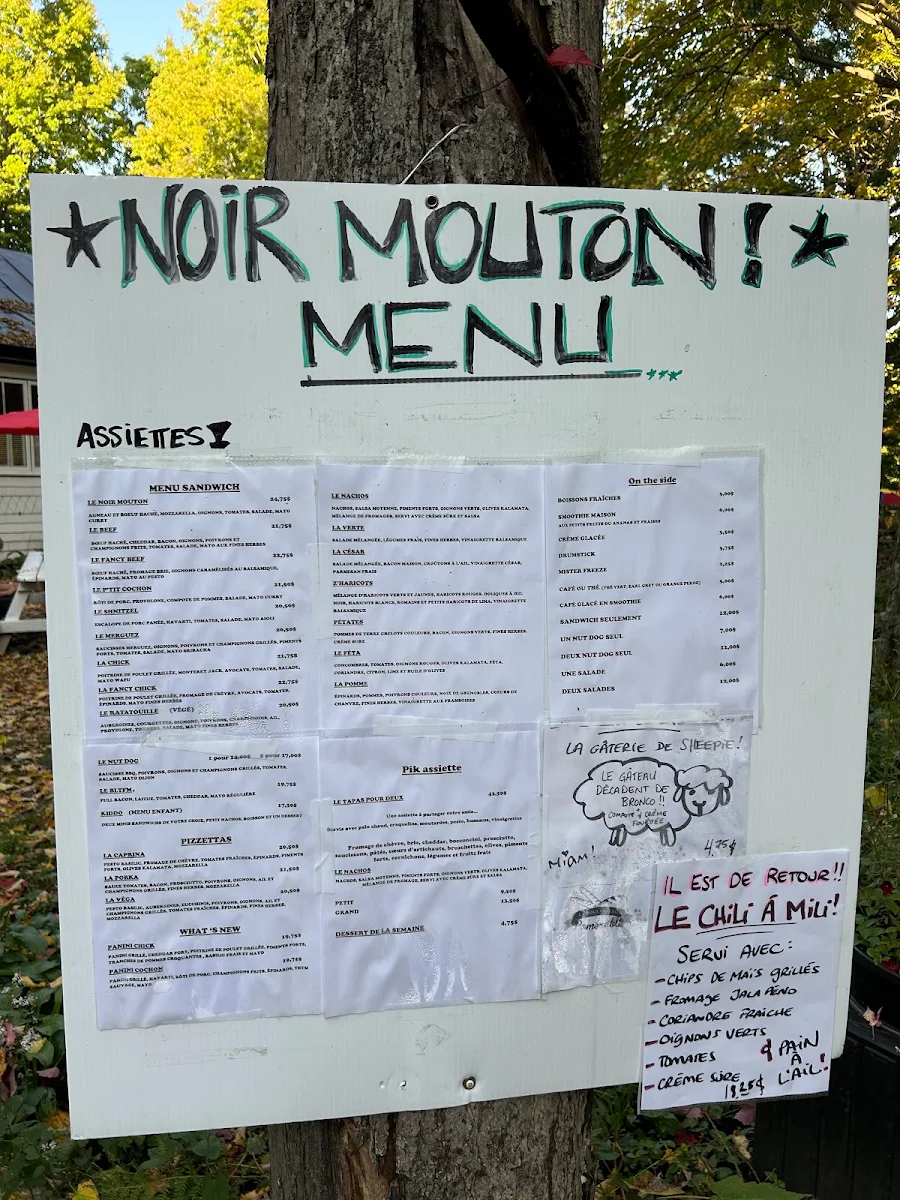 *NOIR MOUTON!*
MENU
ASSIETTES
MENU SANDWICH
LE NOIR MOUTON 24,75$
AGNEAU ET BŒUF HACHÉ, MOZZARELLA, OIGNONS, TOMATES, SALADE, MAYO
CURRY
LE BEEF 21,75$
BŒUF HACHÉ, CHEDDAR, BACON, OIGNONS, POIVRONS ET
CHAMPIGNONS FRITS, TOMATES, SALADE, MAYO AUX FINES HERBES
LE FANCY BEEF 22,75$
BŒUF HACHÉ, FROMAGE BRIE, OIGNONS CARAMÉLISÉS AU BALSAMIQUE,
ÉPINARDS, MAYO AU PESTO
LE P'TIT COCHON 21,50$
RÔTI DE PORC, PROVOLONE, COMPOTE DE POMMES, SALADE, MAYO CURRY
LE SHNITZEL 20,50$
ESCALOPE DE PORC PANÉE, HAVARTI, TOMATES, SALADE, MAYO AIOLI
LE MERGUEZ 20,50$
SAUCISSES MERGUEZ, OIGNONS, POIVRONS ET CHAMPIGNONS GRILLÉS, PIMENTS
FORTS, TOMATES, SALADE, MAYO SRIRACHA
LA CHICK 21,75$
POITRINE DE POULET GRILLÉE, MONTEREY JACK, AVOCATS, TOMATES, SALADE,
MAYO WAFU
LA FANCY CHICK 22,75$
POITRINE DE POULET GRILLÉE, FROMAGE DE CHÈVRE, AVOCATS, TOMATES,
ÉPINARDS, MAYO FINES HERBES
LE RATATOUILLE (VÉGÉ) 20,50$
AUBERGINES, COURGETTES, OIGNONS, POIVRONS, CHAMPIGNONS, AIL,
PROVOLONE, TOMATES, SALADE, MAYO FINES HERBES
LE NUT DOG 1 pour 14,00$ 2 pour 17,00$
SAUCISSE BBQ, POIVRONS, OIGNONS ET CHAMPIGNONS GRILLÉS, TOMATES,
SALADE, MAYO DIJON
LE BLTFM, 19,75$
FULL BACON, LAITUE, TOMATES, CHEDDAR, MAYO RÉGULIÈRE
KIDDO (MENU ENFANT) 17,50$
DEUX MINIS SANDWICHS DE VOTRE CHOIX, PETIT NACHOS, BOISSON ET UN DESSERT
PIZZETTAS
LA CAPRINA 20,50$
PESTO BASILIC, FROMAGE DE CHÈVRE, TOMATES FRAÎCHES, ÉPINARDS, PIMENTS
FORTS, OLIVES KALAMATA, MOZZARELLA
LA PORKA 21,50$
SAUCE TOMATES, BACON, PROSCIUTTO, POIVRONS, OIGNONS, AIL ET
CHAMPIGNONS GRILLÉS, FINES HERBES, MOZZARELLA
LA VÉGA 20,50$
PESTO BASILIC, AUBERGINES, ZUCCHINIS, POIVRONS, OIGNONS, AIL ET
CHAMPIGNONS GRILLÉS, TOMATES FRAÎCHES, ÉPINARDS, FINES HERBES,
MOZZARELLA
WHAT 'S NEW
PANINI CHICK 19,75$
PANINI GRILLÉ, CHEDDAR FORT, POITRINE DE POULET GRILLÉE, PIMENTS FORTS,
TRANCHES DE POMMES CROQUANTES, BASILIC FRAIS ET MAYO
PANINI COCHON 19,75$
PANINI GRILLÉ, HAVARTI, RÔTI DE PORC, CHAMPIGNONS FRITS, ÉPINARDS, THYM
SAUVAGE, MAYO
LE NACHOS
NACHOS, SALSA MOYENNE, PIMENTS FORTS, OIGNONS VERTS, OLIVES KALAMATA,
MÉLANGE DE FROMAGES, SERVI AVEC CRÈME SÛRE ET SALSA
LA VERTE
SALADE MÉLANGÉE, LÉGUMES FRAIS, FINES HERBES, VINAIGRETTE BALSAMIQUE
LA CÉSAR
SALADE MÉLANGÉE, BACON MAISON, CROÛTONS À L'AIL, VINAIGRETTE CÉSAR,
PARMESAN FRAIS
Z'HARICOTS
MÉLANGE D'HARICOTS VERTS ET JAUNES, HARICOTS ROUGES, DOLIQUES À ŒIL
NOIR, HARICOTS BLANCS, ROMAINS ET PETITS HARICOTS DE LIMA, VINAIGRETTE
BALSAMIQUE
PÉTATES
POMMES DE TERRE GRELOTS COULEURS, BACON, OIGNONS VERTS, FINES HERBES,
CRÈME SURE
LE FÉTA
CONCOMBRES, TOMATES, OIGNONS ROUGES, OLIVES KALAMATA, FÉTA,
CORIANDRE, CITRON, LIME ET HUILE D'OLIVES
LA POMME
ÉPINARDS, POMMES, POIVRONS COULEURS, NOIX DE GRENOBLES, CŒURS DE
CHANVRE, FINES HERBES, VINAIGRETTE AUX FRAMBOISES
Pik assiette
LE TAPAS POUR DEUX 41,50$
Une assiette à partager entre amis...
Servis avec pain chaud, craquelins, moutardes, pesto, houmous, vinaigrettes
Fromage de chèvre, brie, cheddar, bocconcini, prosciutto,
saucissons, pâtés, cœurs d'artichauts, bruschettas, olives, piments
forts, cornichons, légumes et fruits frais
LE NACHOS
NACHOS, SALSA MOYENNE, PIMENTS FORTS, OIGNONS VERTS, OLIVES KALAMATA,
MÉLANGE DE FROMAGE, SERVI AVEC CRÈME SURE ET SALSA
PETIT 9,50$
GRAND 13,50$
DESSERT DE LA SEMAINE 4,75$
On the side
BOISSONS FRAÎCHES 3,00$
SMOOTHIE MAISON 6,00$
AUX PETITS FRUITS OU ANANAS ET FRAISES
CRÈME GLACÉE 3,50$
DRUMSTICK 3,75$
MISTER FREEZE 2,25$
CAFÉ OU THÉ (THÉ VERT, EARL GREY OU ORANGE PEKOE) 3,00$
CAFÉ GLACÉ EN SMOOTHIE 6,00$
SANDWICH SEULEMENT 12,00$
UN NUT DOG SEUL 7,00$
DEUX NUT DOG SEUL 12,00$
UNE SALADE 6,00$
DEUX SALADES 12,00$
LA GÂTERIE DE SHEEPIE!
LE GÂTEAU
DÉCADENT DE
BRONCO!!
COMPOTE & CRÈME
FOUETTÉE
MIAM!
4,75$
IL EST DE RETOUR!!
LE CHILI Á MILI!
SERVI AVEC:
- CHIPS DE MAÏS GRILLÉS
- FROMAGE JALAPÉNO
- CORIANDRE FRAICHE
- OIGNONS VERTS
- TOMATES
- CRÈME SÛRE
& PAIN
À
L'AIL!